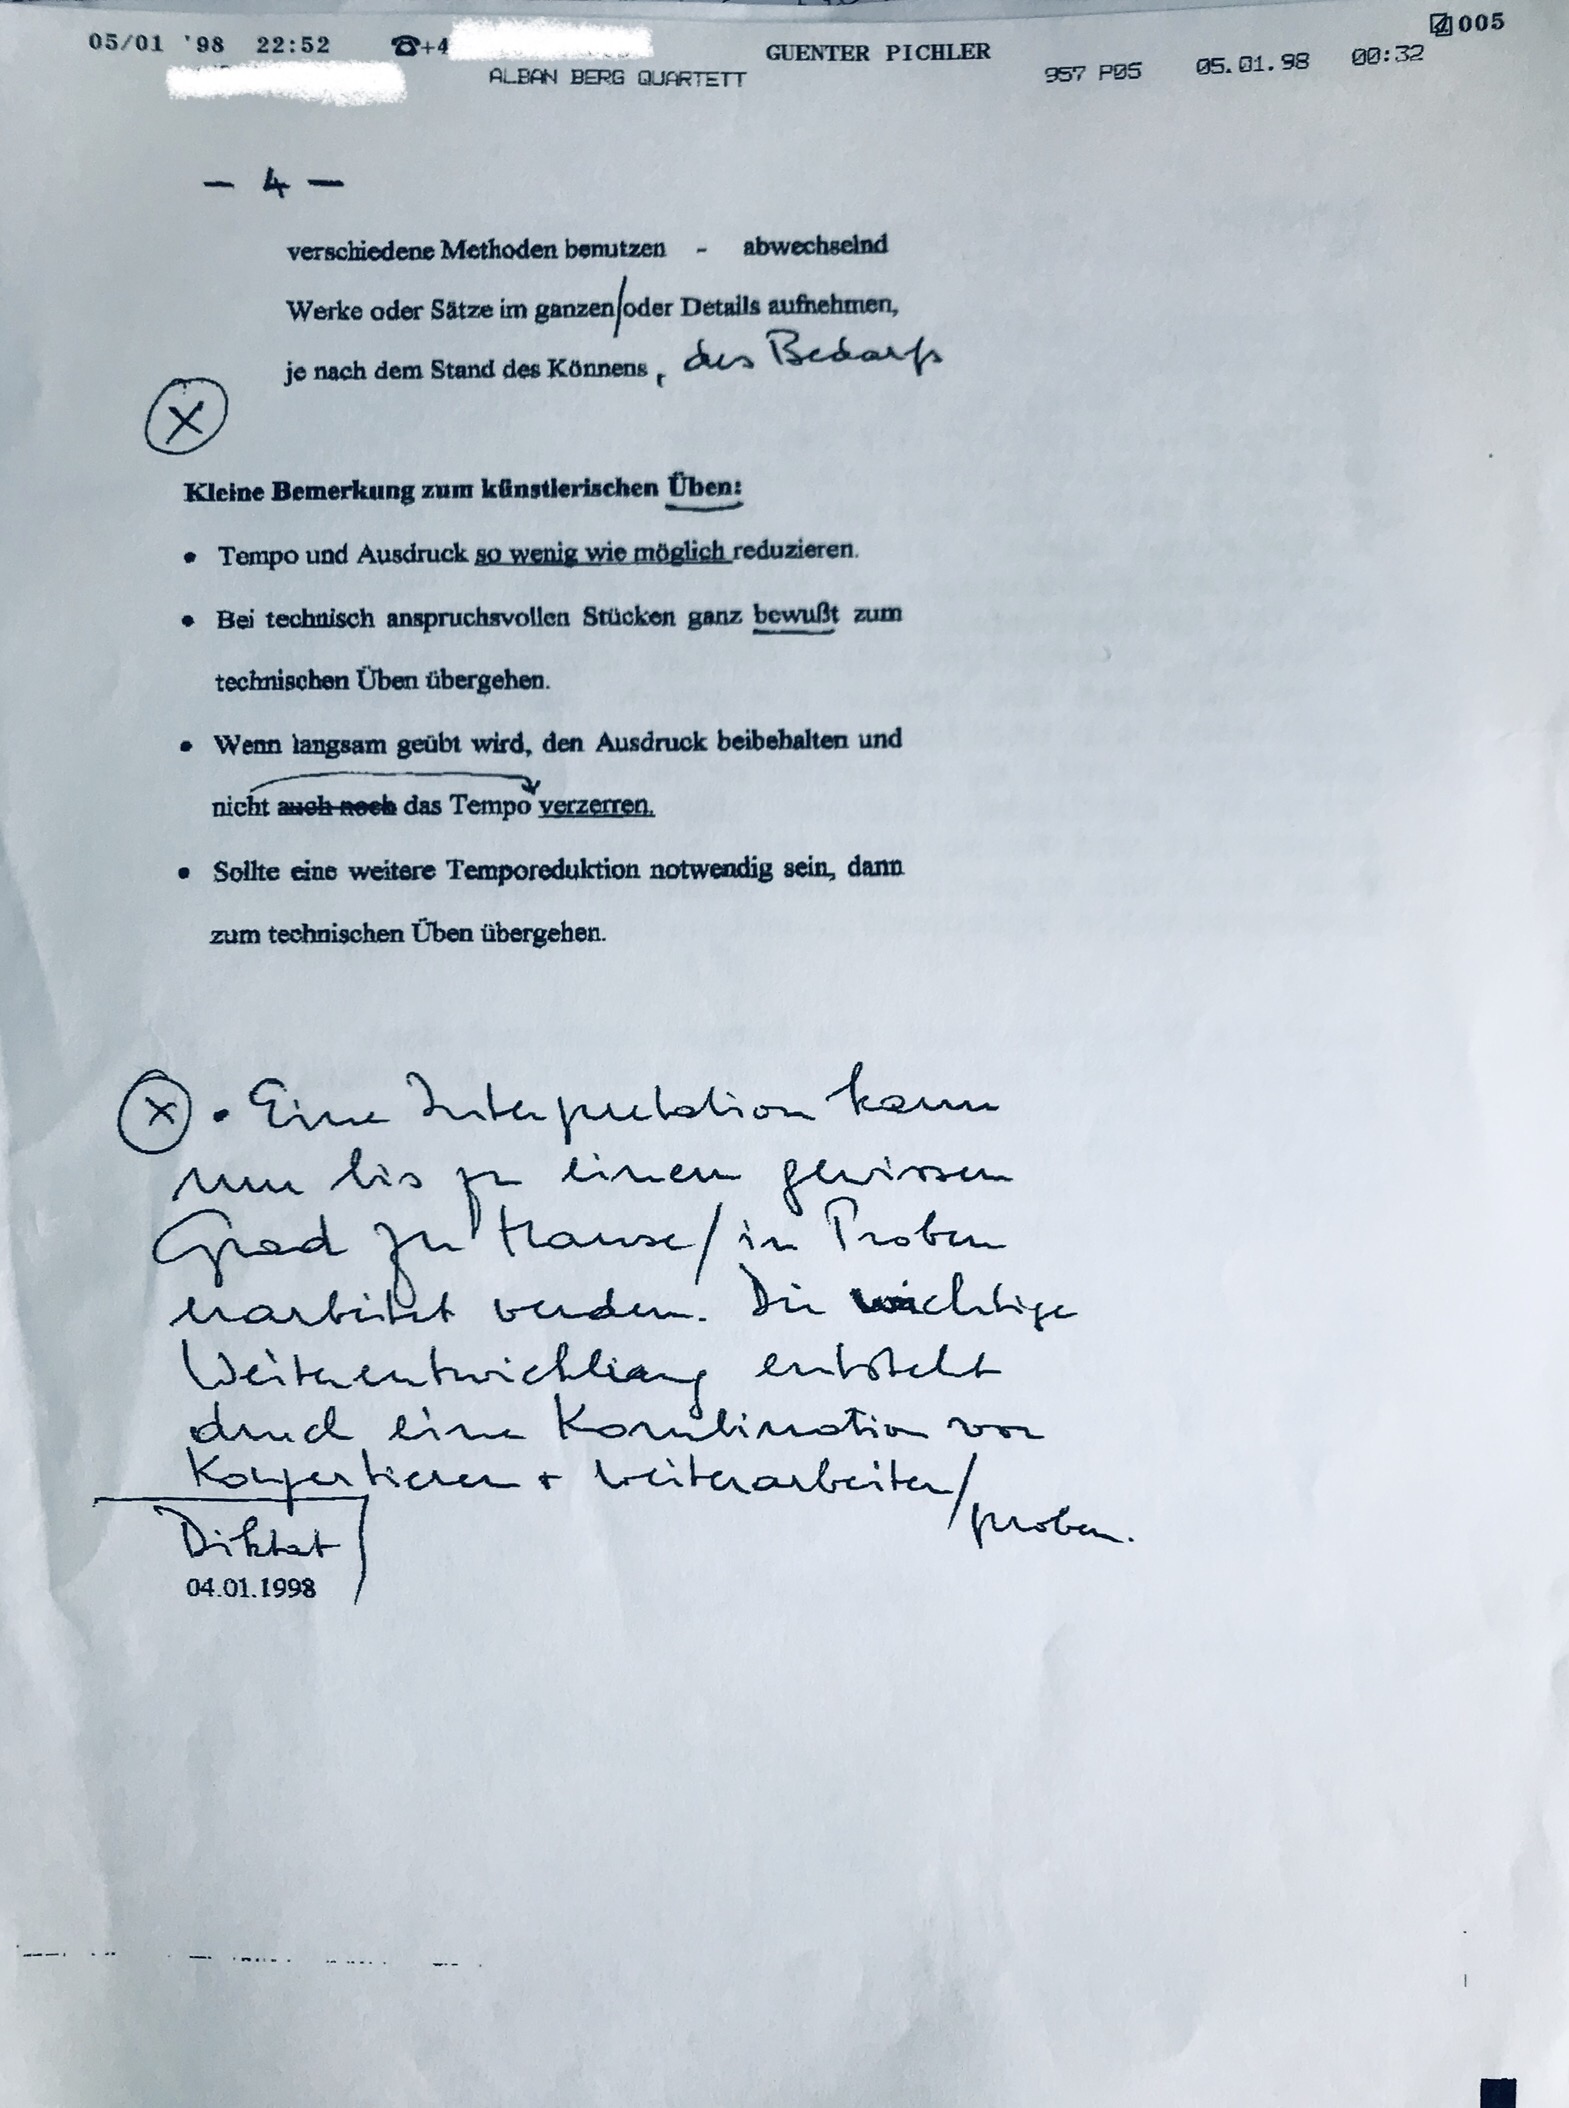 05/01 '98 22:52 ☎+4 GUENTER PICHLER 005
ALBAN BERG QUARTETT 957 P05 05.01.98 00:32
– 4 –
verschiedene Methoden benutzen - abwechselnd
Werke oder Sätze im ganzen/oder Details aufnehmen,
je nach dem Stand des Könnens, des Bedarfs
X
Kleine Bemerkung zum künstlerischen Üben:
• Tempo und Ausdruck so wenig wie möglich reduzieren.
• Bei technisch anspruchsvollen Stücken ganz bewußt zum
technischen Üben übergehen.
• Wenn langsam geübt wird, den Ausdruck beibehalten und
nicht auch noch das Tempo verzerren.
• Sollte eine weitere Temporeduktion notwendig sein, dann
zum technischen Üben übergehen.
X • Eine Interpretation kann
nur bis zu einem gewissen
Grad zu Hause/in Proben
erarbeitet werden. Die wichtige
Weiterentwicklung entsteht
durch eine Kombination von
Konzertieren + weiterarbeiten/
proben.
Diktat
04.01.1998